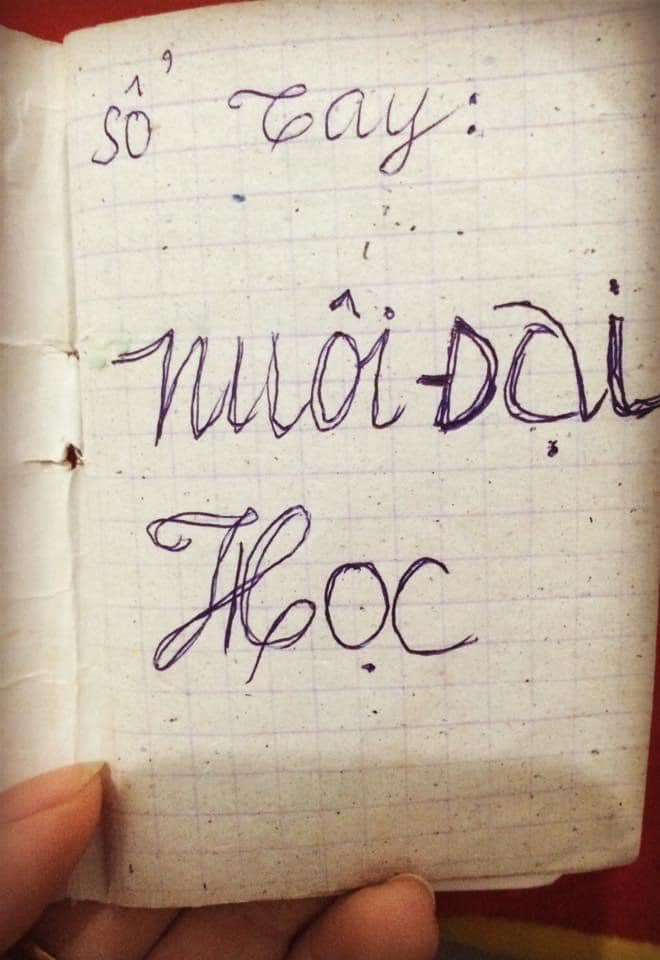 Sổ Tay:
nuôi Đại
Học